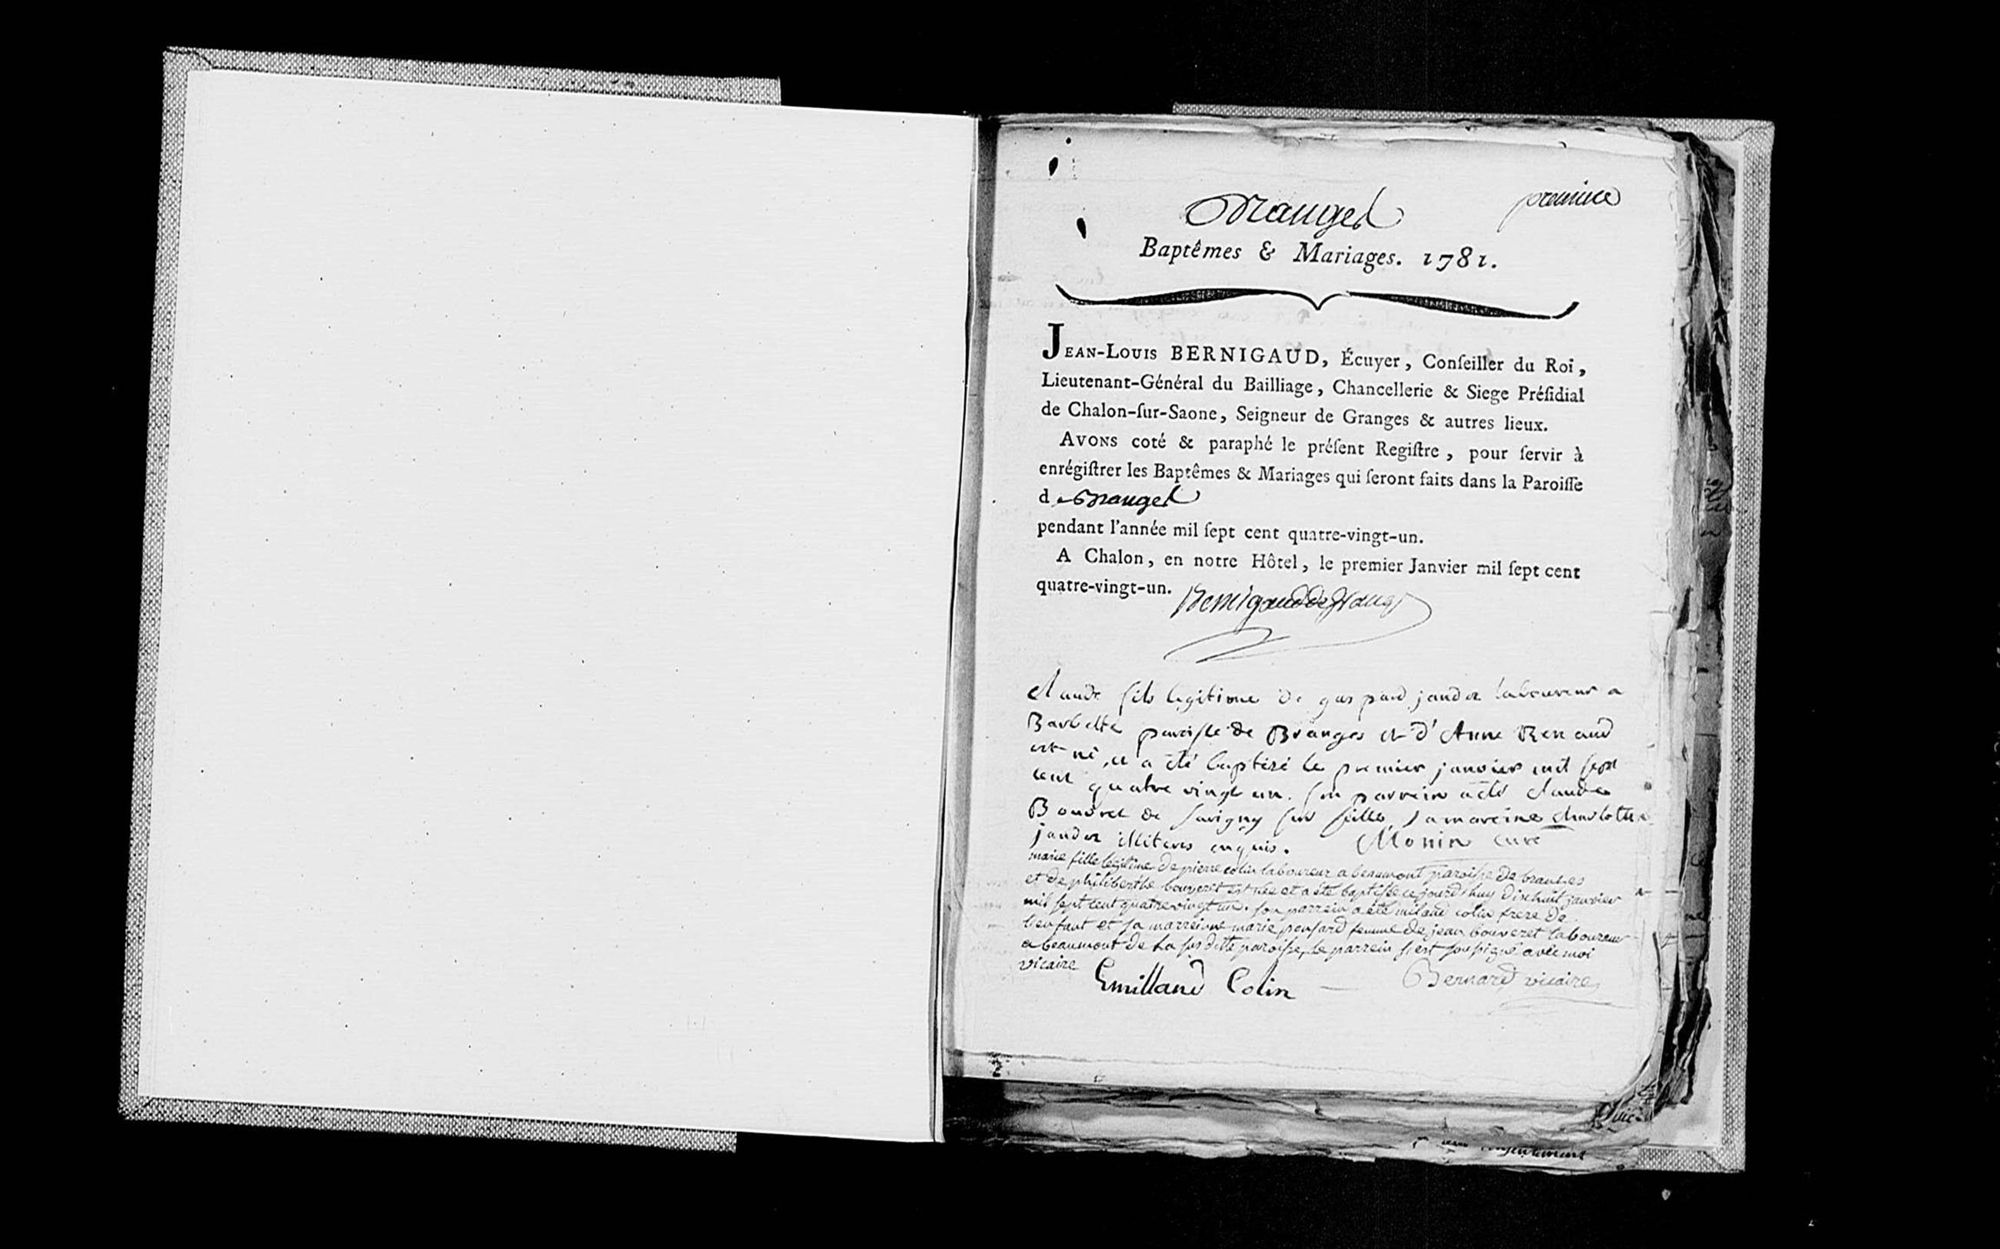 Branges
premiere
Baptêmes & Mariages. 1781.
JEAN-LOUIS BERNIGAUD, Écuyer, Conſeiller du Roi,
Lieutenant-Général du Bailliage, Chancellerie & Siege Préſidial
de Chalon-ſur-Saone, Seigneur de Granges & autres lieux.
AVONS coté & paraphé le préſent Regiſtre, pour ſervir à
enrégiſtrer les Baptêmes & Mariages qui ſeront faits dans la Paroiſſe
de Branges
pendant l'année mil ſept cent quatre-vingt-un.
A Chalon, en notre Hôtel, le premier Janvier mil ſept cent
quatre-vingt-un.
Bernigaud de Granges
Claude fils legitime de gaspard jandot laboureur a
Barbette paroisse de Branges et d'Anne Renaud
est né, et a été baptisé le premier janvier mil sept
cent quatre vingt un. son parrein a été Claude
Boudret de Savigny sa marreine Charlotte
jandot illiteres enquis. Monin curé
marie fille legitime de pierre colin laboureur a beaumont paroisse de branges
et de philiberthe bouveret est née et a été baptisée ce jourd'huy dixhuit janvier
mil sept cent quatre vingt un. son parrein a été miland colin frere de
l'enfant et sa marreinne marie ponsard femme de jean bouveret laboureur
a beaumont de la sus ditte paroisse, le parrein s'est soussigné avec moi
vicaire
Emilland Colin
Bernard vicaire